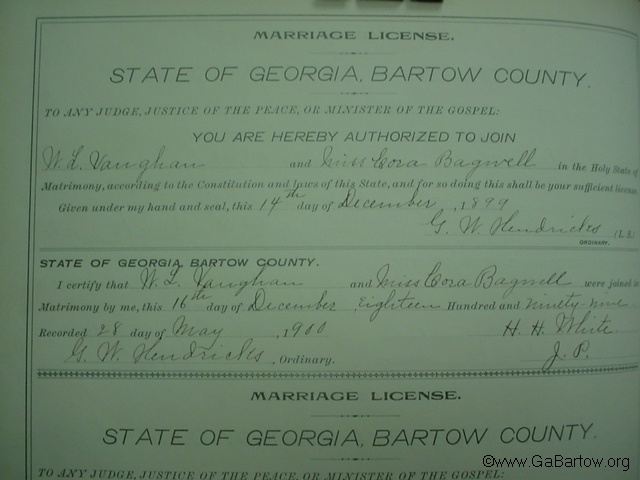 MARRIAGE LICENSE.
STATE OF GEORGIA, BARTOW COUNTY.
TO ANY JUDGE, JUSTICE OF THE PEACE, OR MINISTER OF THE GOSPEL:
YOU ARE HEREBY AUTHORIZED TO JOIN
W. L. Vaughan and Miss Cora Bagwell in the Holy State of
Matrimony, according to the Constitution and laws of this State, and for so doing this shall be your sufficient license
Given under my hand and seal, this 14th day of December, 1899
G. W. Hendricks (L.S.)
ORDINARY.
STATE OF GEORGIA, BARTOW COUNTY.
I certify that W. L. Vaughan and Miss Cora Bagwell were joined in
Matrimony by me, this 16th day of December Eighteen Hundred and ninety-nine
Recorded 28 day of May, 1900 H. H. White
G. W. Hendricks, Ordinary. J. P.
MARRIAGE LICENSE.
STATE OF GEORGIA, BARTOW COUNTY.
TO ANY JUDGE, JUSTICE OF THE PEACE, OR MINISTER OF THE GOSPEL:
©www.GaBartow.org